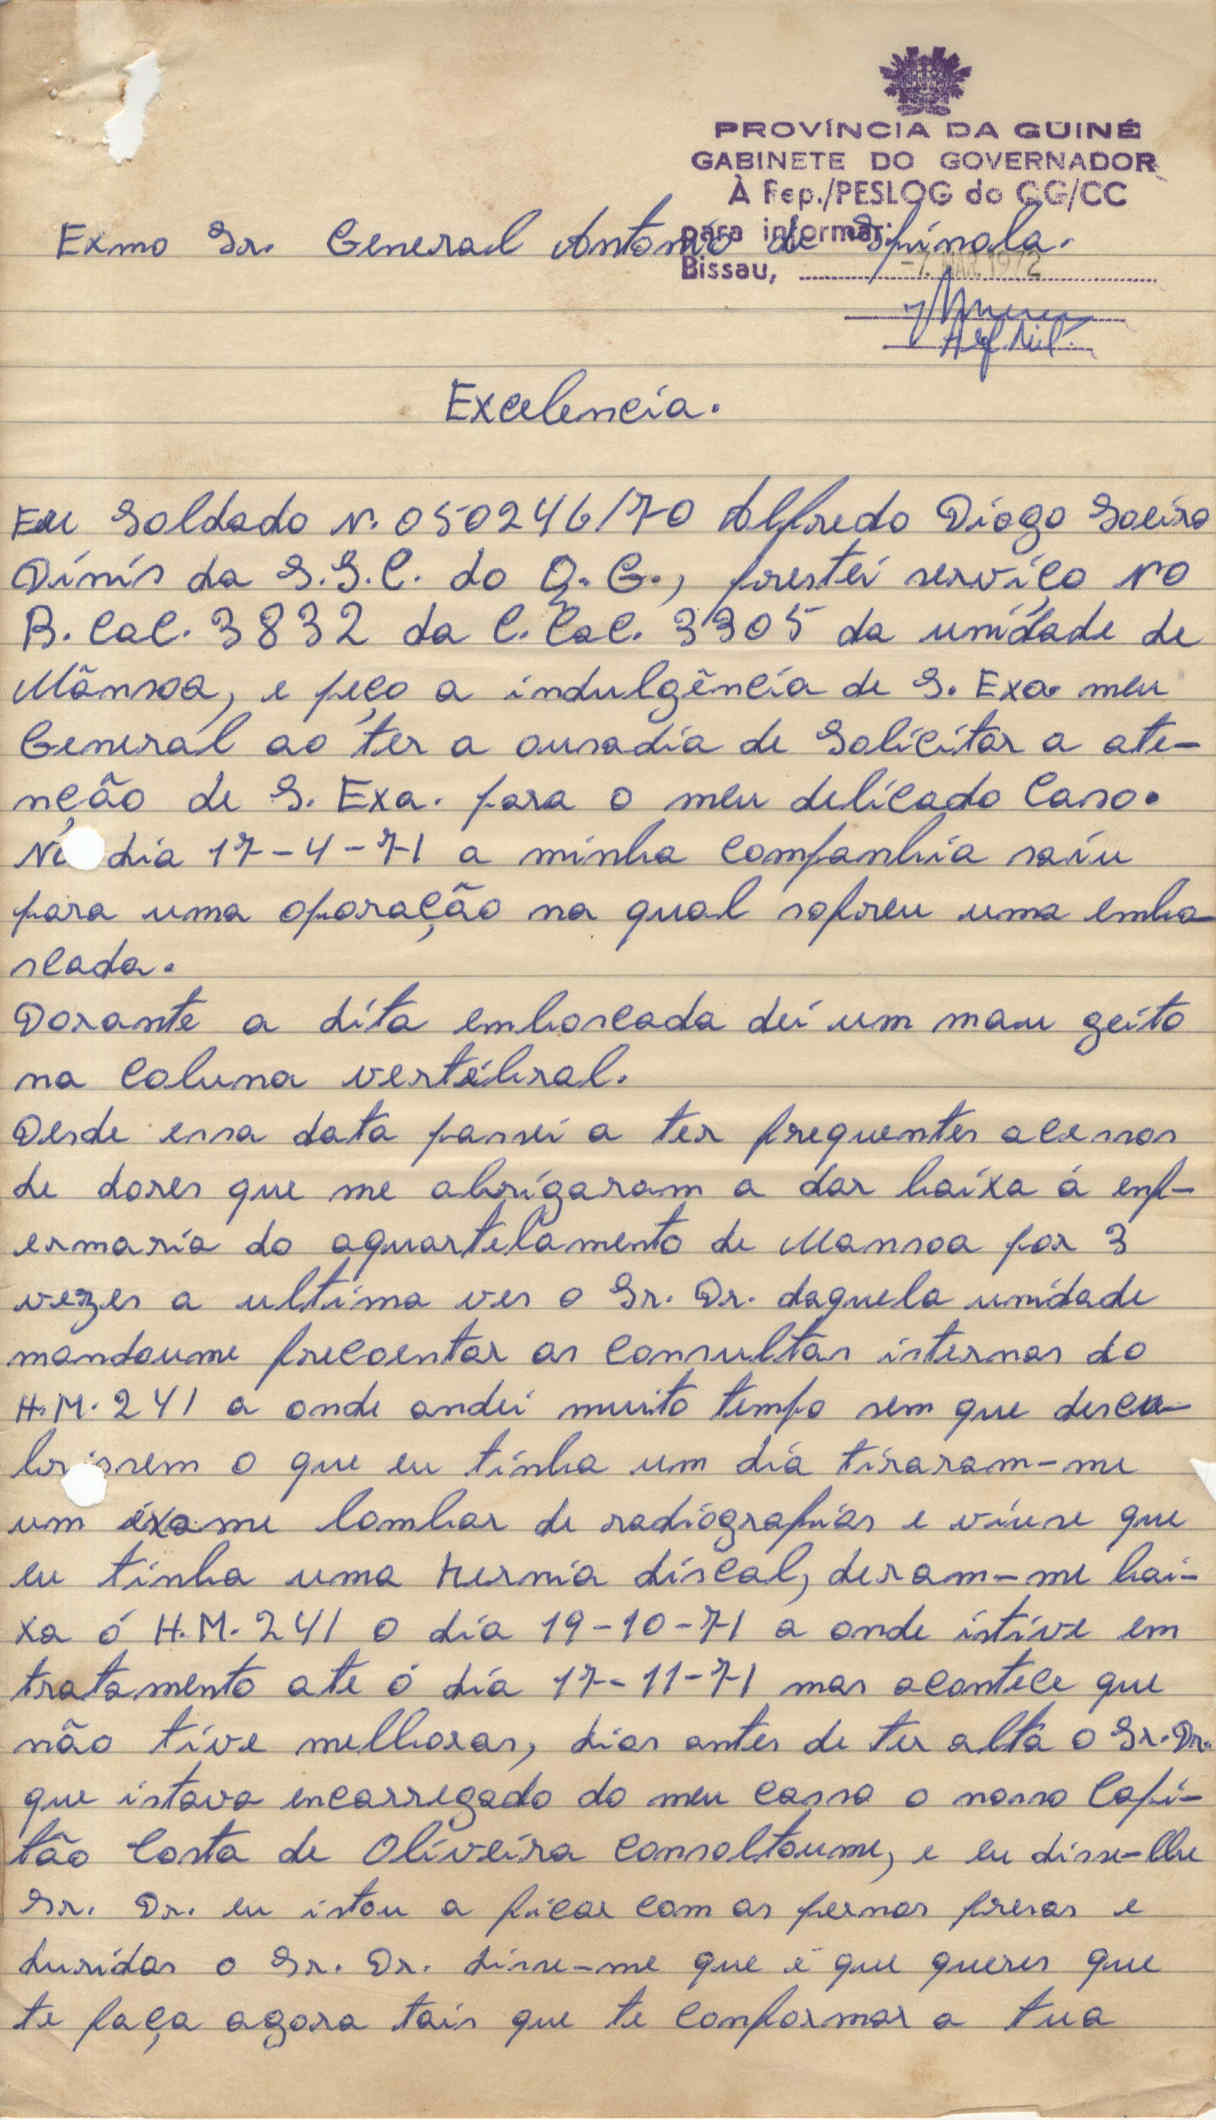 PROVÍNCIA DA GUINÉ
GABINETE DO GOVERNADOR
À Rep./PESLOG do CG/CC
para informar:
Exmo Sr. General Antonio de Spínola.
Bissau, -7. MAR. 1972
Alf Mil.
Excelencia.
Eu Soldado N. 050246/70 Alfredo Diogo Soeiro
Dínis da S.S.C. do Q.G., prestei servíço no
B. Cac. 3832 da C. Cac. 3305 da unídade de
Mãnsoa, e peço a indulgêncía de S. Exa. meu
General ao ter a ousadía de Solícitar a ate-
nção de S. Exa. para o meu delícado Caso.
No dia 17-4-71 a minha Companhia saíu
para uma oporação na qual sofreu uma embo
scada.
Dorante a díta emboscada deí um mau geíto
na Coluna vertébral.
Desde essa data passei a ter frequentes acessos
de dores que me abrígaram a dar baíxa á enf-
ermaría do aquartelamento de Mansoa por 3
vezes a ultíma ves o Sr. Dr. daquela unídade
mandoume frecoentar as Consultas internas do
H.M. 241 a onde andeí muito tempo sem que descu-
brissem o que eu tínha um día tíraram-me
um éxame lombar de radíografías e víuse que
eu tinha uma Hernía díscal, deram-me bai-
xa ó H.M. 241 o día 19-10-71 a onde istíve em
tratamento ate ó día 17-11-71 mas acontece que
não tíve melhoras, dias antes de ter alta o Sr. Dr.
que istava encarregado do meu casso o nosso Capi-
tão Costa de Olíveíra Consoltoume, e eu disse-lhe
Sr. Dr. eu istou a fícar com as pernas presas e
durídas o Sr. Dr. disse-me que é que queres que
te faça agora tais que te conformar a tua